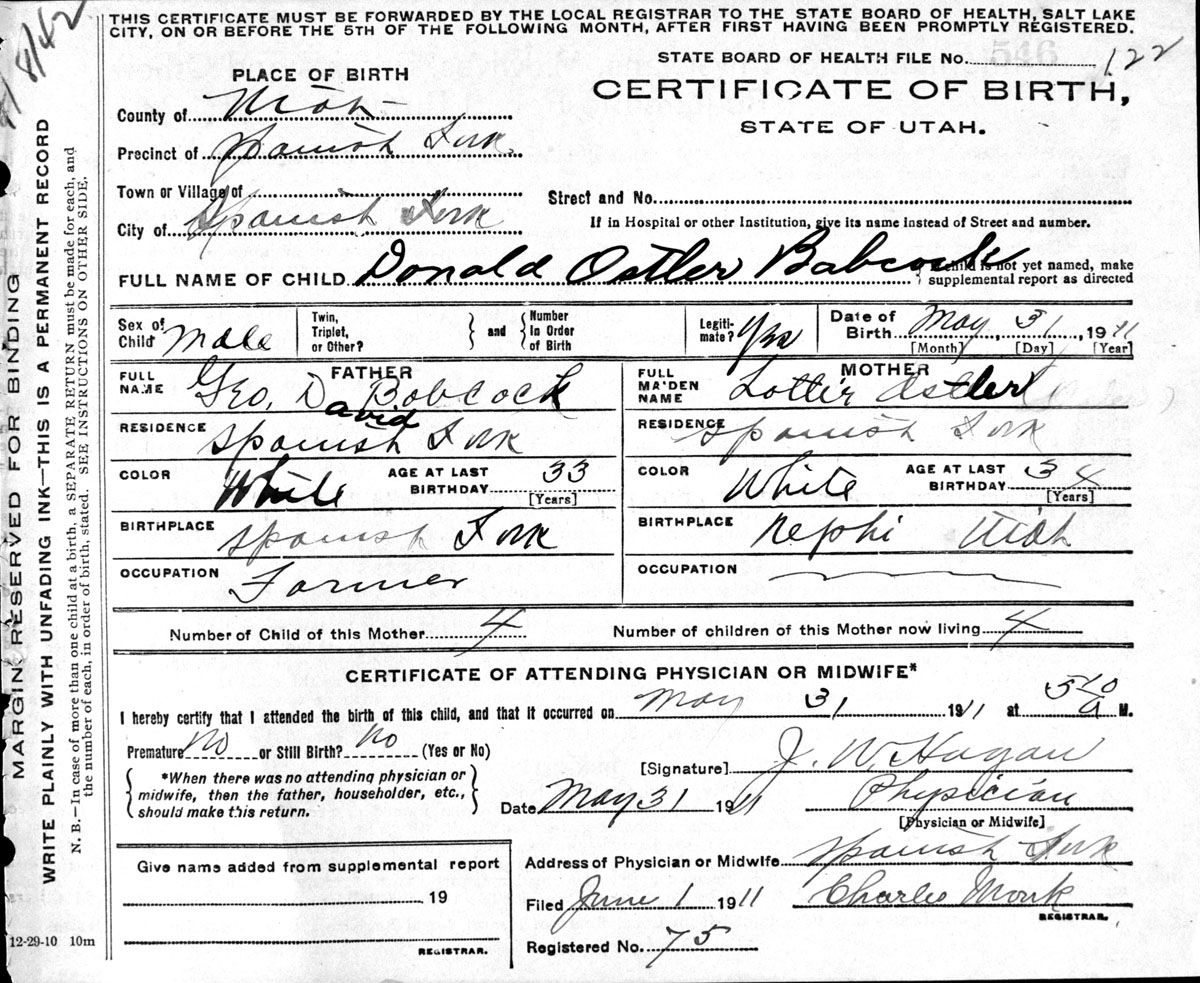 THIS CERTIFICATE MUST BE FORWARDED BY THE LOCAL REGISTRAR TO THE STATE BOARD OF HEALTH, SALT LAKE
CITY, ON OR BEFORE THE 5TH OF THE FOLLOWING MONTH, AFTER FIRST HAVING BEEN PROMPTLY REGISTERED.
8/42
MARGIN RESERVED FOR BINDING
WRITE PLAINLY WITH UNFADING INK—THIS IS A PERMANENT RECORD
N. B.—In case of more than one child at a birth, a SEPARATE RETURN must be made for each, and
the number of each, in order of birth, stated. SEE INSTRUCTIONS ON OTHER SIDE.
STATE BOARD OF HEALTH FILE No. 122
546
PLACE OF BIRTH
CERTIFICATE OF BIRTH,
STATE OF UTAH.
County of Utah
Precinct of Spanish Fork
Town or Village of
City of Spanish Fork
Street and No.
If in Hospital or other Institution, give its name instead of Street and number.
FULL NAME OF CHILD Donald Ostler Babcock
If child is not yet named, make
supplemental report as directed
Sex of Child Male
Twin, Triplet, or Other?
and
Number In Order of Birth
Legiti-mate? Yes
Date of Birth May 31, 1911
[Month] [Day] [Year]
FATHER
FULL NAME Geo. David Babcock
MOTHER
FULL MAIDEN NAME Lottie Ostler
RESIDENCE Spanish Fork
RESIDENCE Spanish Fork
COLOR White
AGE AT LAST BIRTHDAY 33
[Years]
COLOR White
AGE AT LAST BIRTHDAY 34
[Years]
BIRTHPLACE Spanish Fork
BIRTHPLACE Nephi Utah
OCCUPATION Farmer
OCCUPATION
Number of Child of this Mother 4
Number of children of this Mother now living 4
CERTIFICATE OF ATTENDING PHYSICIAN OR MIDWIFE*
I hereby certify that I attended the birth of this child, and that it occurred on May 31 1911 at 510 a M.
Premature No or Still Birth? No (Yes or No)
*When there was no attending physician or
midwife, then the father, householder, etc.,
should make this return.
[Signature] J. W. Hagan
Date May 31 1911
Physician
[Physician or Midwife]
Give name added from supplemental report
19
REGISTRAR.
Address of Physician or Midwife Spanish Fork
Filed June 1 1911
Charles Monk
REGISTRAR.
Registered No. 75
12-29-10 10m